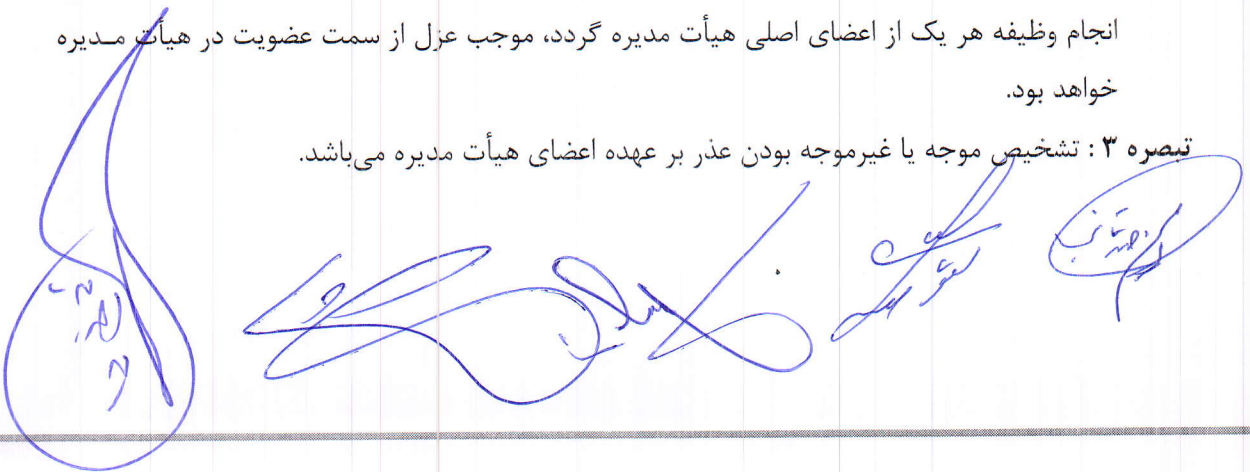 انجام وظیفه هر یک از اعضای اصلی هیأت مدیره گردد، موجب عزل از سمت عضویت در هیأت مـدیره
خواهد بود.
تبصره ۳ : تشخیص موجه یا غیرموجه بودن عذر بر عهده اعضای هیأت مدیره می‌باشد.